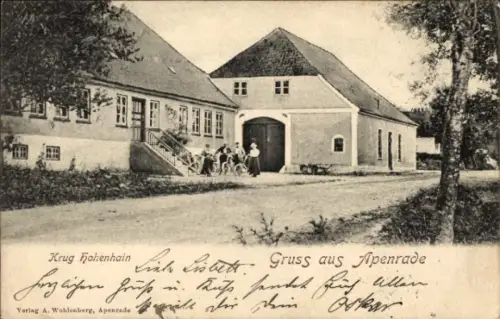 Krug Hohenhain
Gruss aus Apenrade
Liebe Lisbeth
Herzlichen Gruß u. Kuß sendet für Allen
dein Oskar
Verlag A. Wohlenberg, Apenrade